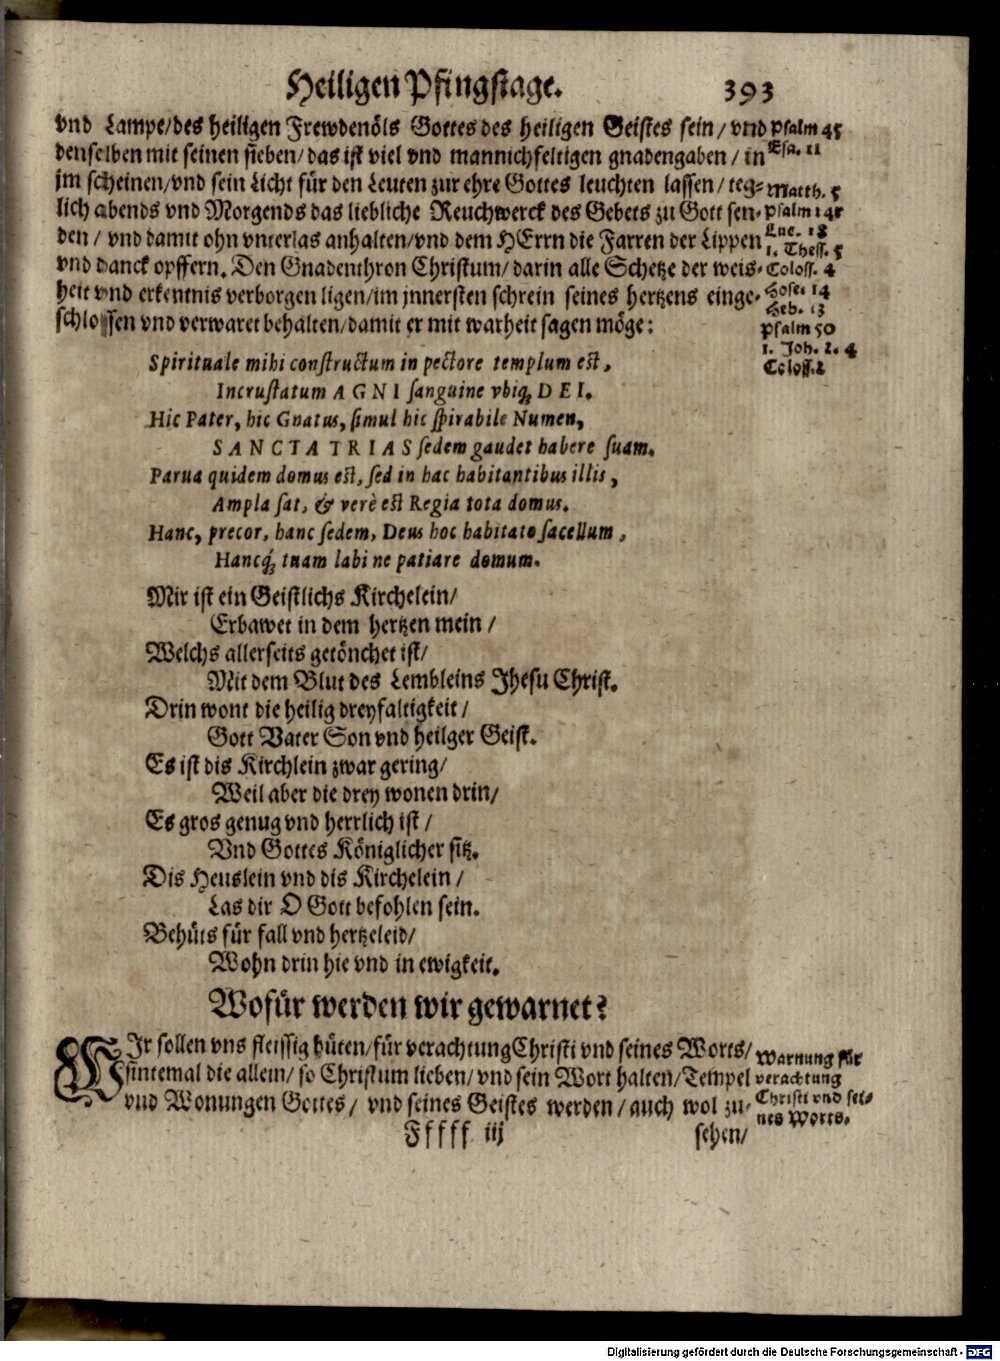 Heiligen Pfingstage. 393
vnd Lampe/des heiligen Frewdenöls Gottes des heiligen Geistes sein/ vnd
denselben mit seinen sieben/das ist viel vnd mannichfeltigen gnadengaben / in
jm scheinen/vnd sein Licht für den Leuten zur ehre Gottes leuchten lassen/ teg-
lich abends vnd Morgends das liebliche Reuchwerck des Gebets zu Gott sen-
den / vnd damit ohn vnterlas anhalten/vnd dem HErrn die Farren der Lippen
vnd danck opffern. Den Gnadenthron Christum/ darin alle Schetze der weis-
heit vnd erkentnis verborgen ligen/im jnnersten schrein seines hertzens einge-
schlossen vnd verwaret behalten/damit er mit warheit sagen möge:
Psalm 45
Esa. 11
Matth. 5
Psalm 141
Luc. 18
1. Thess. 5
Coloss. 4
Hose. 14
Heb. 13
Psalm 50
1. Joh. 2. 4
Coloss. 2
Spirituale mihi constructum in pectore templum est,
Incrustatum AGNI sanguine vbiq; DEI.
Hic Pater, hic Gnatus, simul hic spirabile Numen,
SANCTA TRIAS sedem gaudet habere suam.
Parua quidem domus est, sed in hac habitantibus illis,
Ampla sat, & verè est Regia tota domus.
Hanc, precor, hanc sedem, Deus hoc habitato sacellum,
Hancq́; tuam labi ne patiare domum.
Mir ist ein Geistlichs Kirchelein/
Erbawet in dem hertzen mein /
Welchs allerseits getönchet ist/
Mit dem Blut des Lembleins Jhesu Christ.
Drin wont die heilig dreyfaltigkeit /
Gott Vater Son vnd heilger Geist.
Es ist dis Kirchlein zwar gering/
Weil aber die drey wonen drin/
Es gros genug vnd herrlich ist /
Vnd Gottes Königlicher sitz.
Dis Heuslein vnd dis Kirchelein /
Las dir O Gott befohlen sein.
Behüts für fall vnd hertzeleid/
Wohn drin hie vnd in ewigkeit.
Wofür werden wir gewarnet?
WJr sollen vns fleissig hüten/für verachtung Christi vnd seines Worts/
sintemal die allein/ so Christum lieben/ vnd sein Wort halten/Tempel
vnd Wonungen Gottes/ vnd seines Geistes werden/ auch wol zu-
Warnung für
verachtung
Christi vnd sei-
nes Worts.
Fffff iij
sehen/
Digitalisierung gefördert durch die Deutsche Forschungsgemeinschaft - DFG